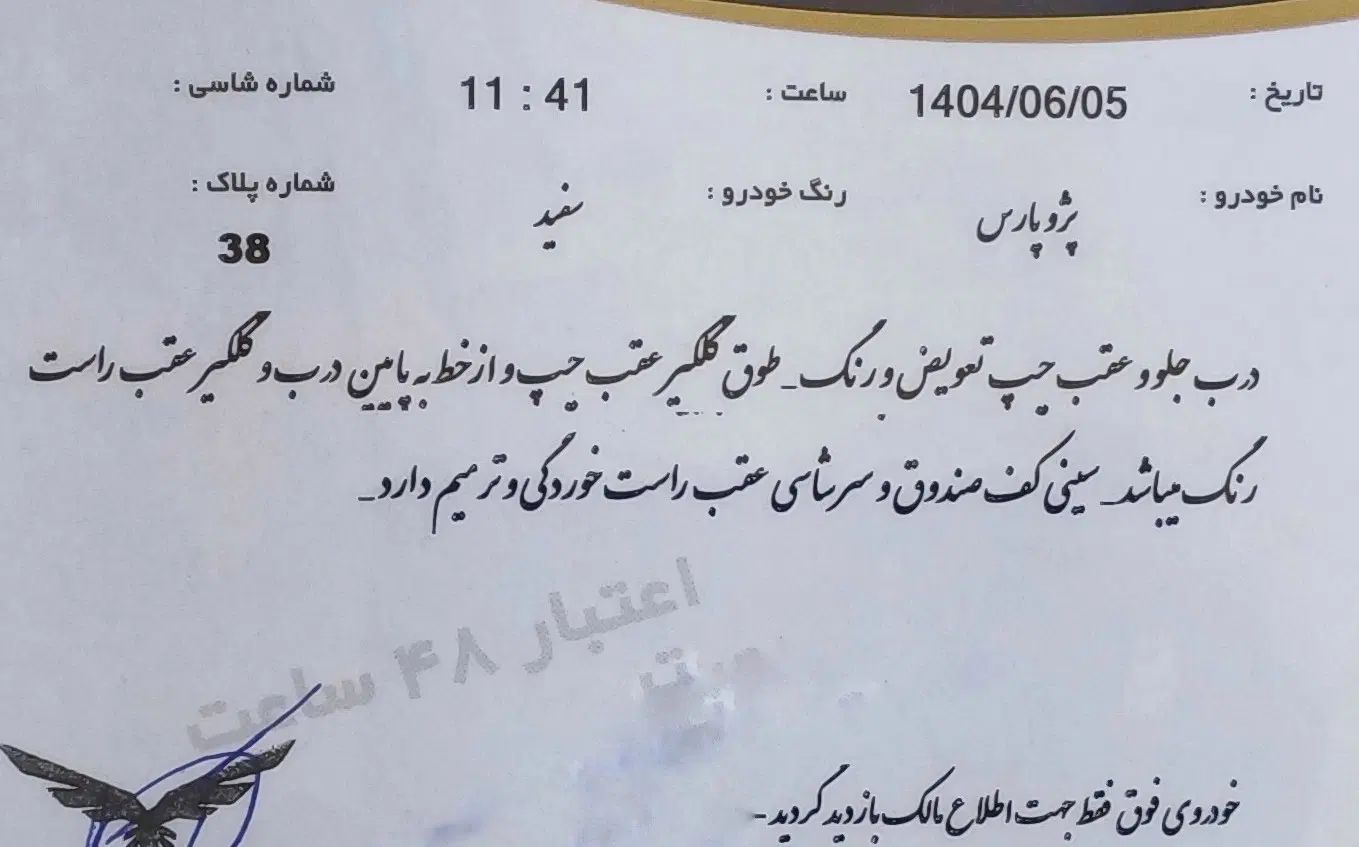 تاریخ : 1404/06/05 ساعت : 11 : 41 شماره شاسی :
نام خودرو : پژو پارس رنگ خودرو : سفید شماره پلاک :
38
درب جلو و عقب چپ تعویض و رنگ_ طوق گلگیر عقب چپ و از خط به پایین درب و گلگیر عقب راست
رنگ میباشد_ سینی کف صندوق و سرشاسی عقب راست خوردگی و ترمیم دارد_
اعتبار ۴۸ ساعت
خودروی فوق فقط جهت اطلاع مالک بازدید گردید_